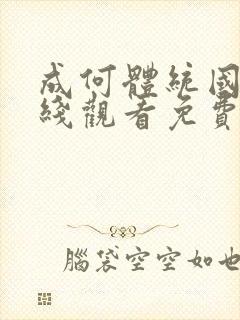 成何體統國
綫觀看免費
腦袋空空如也